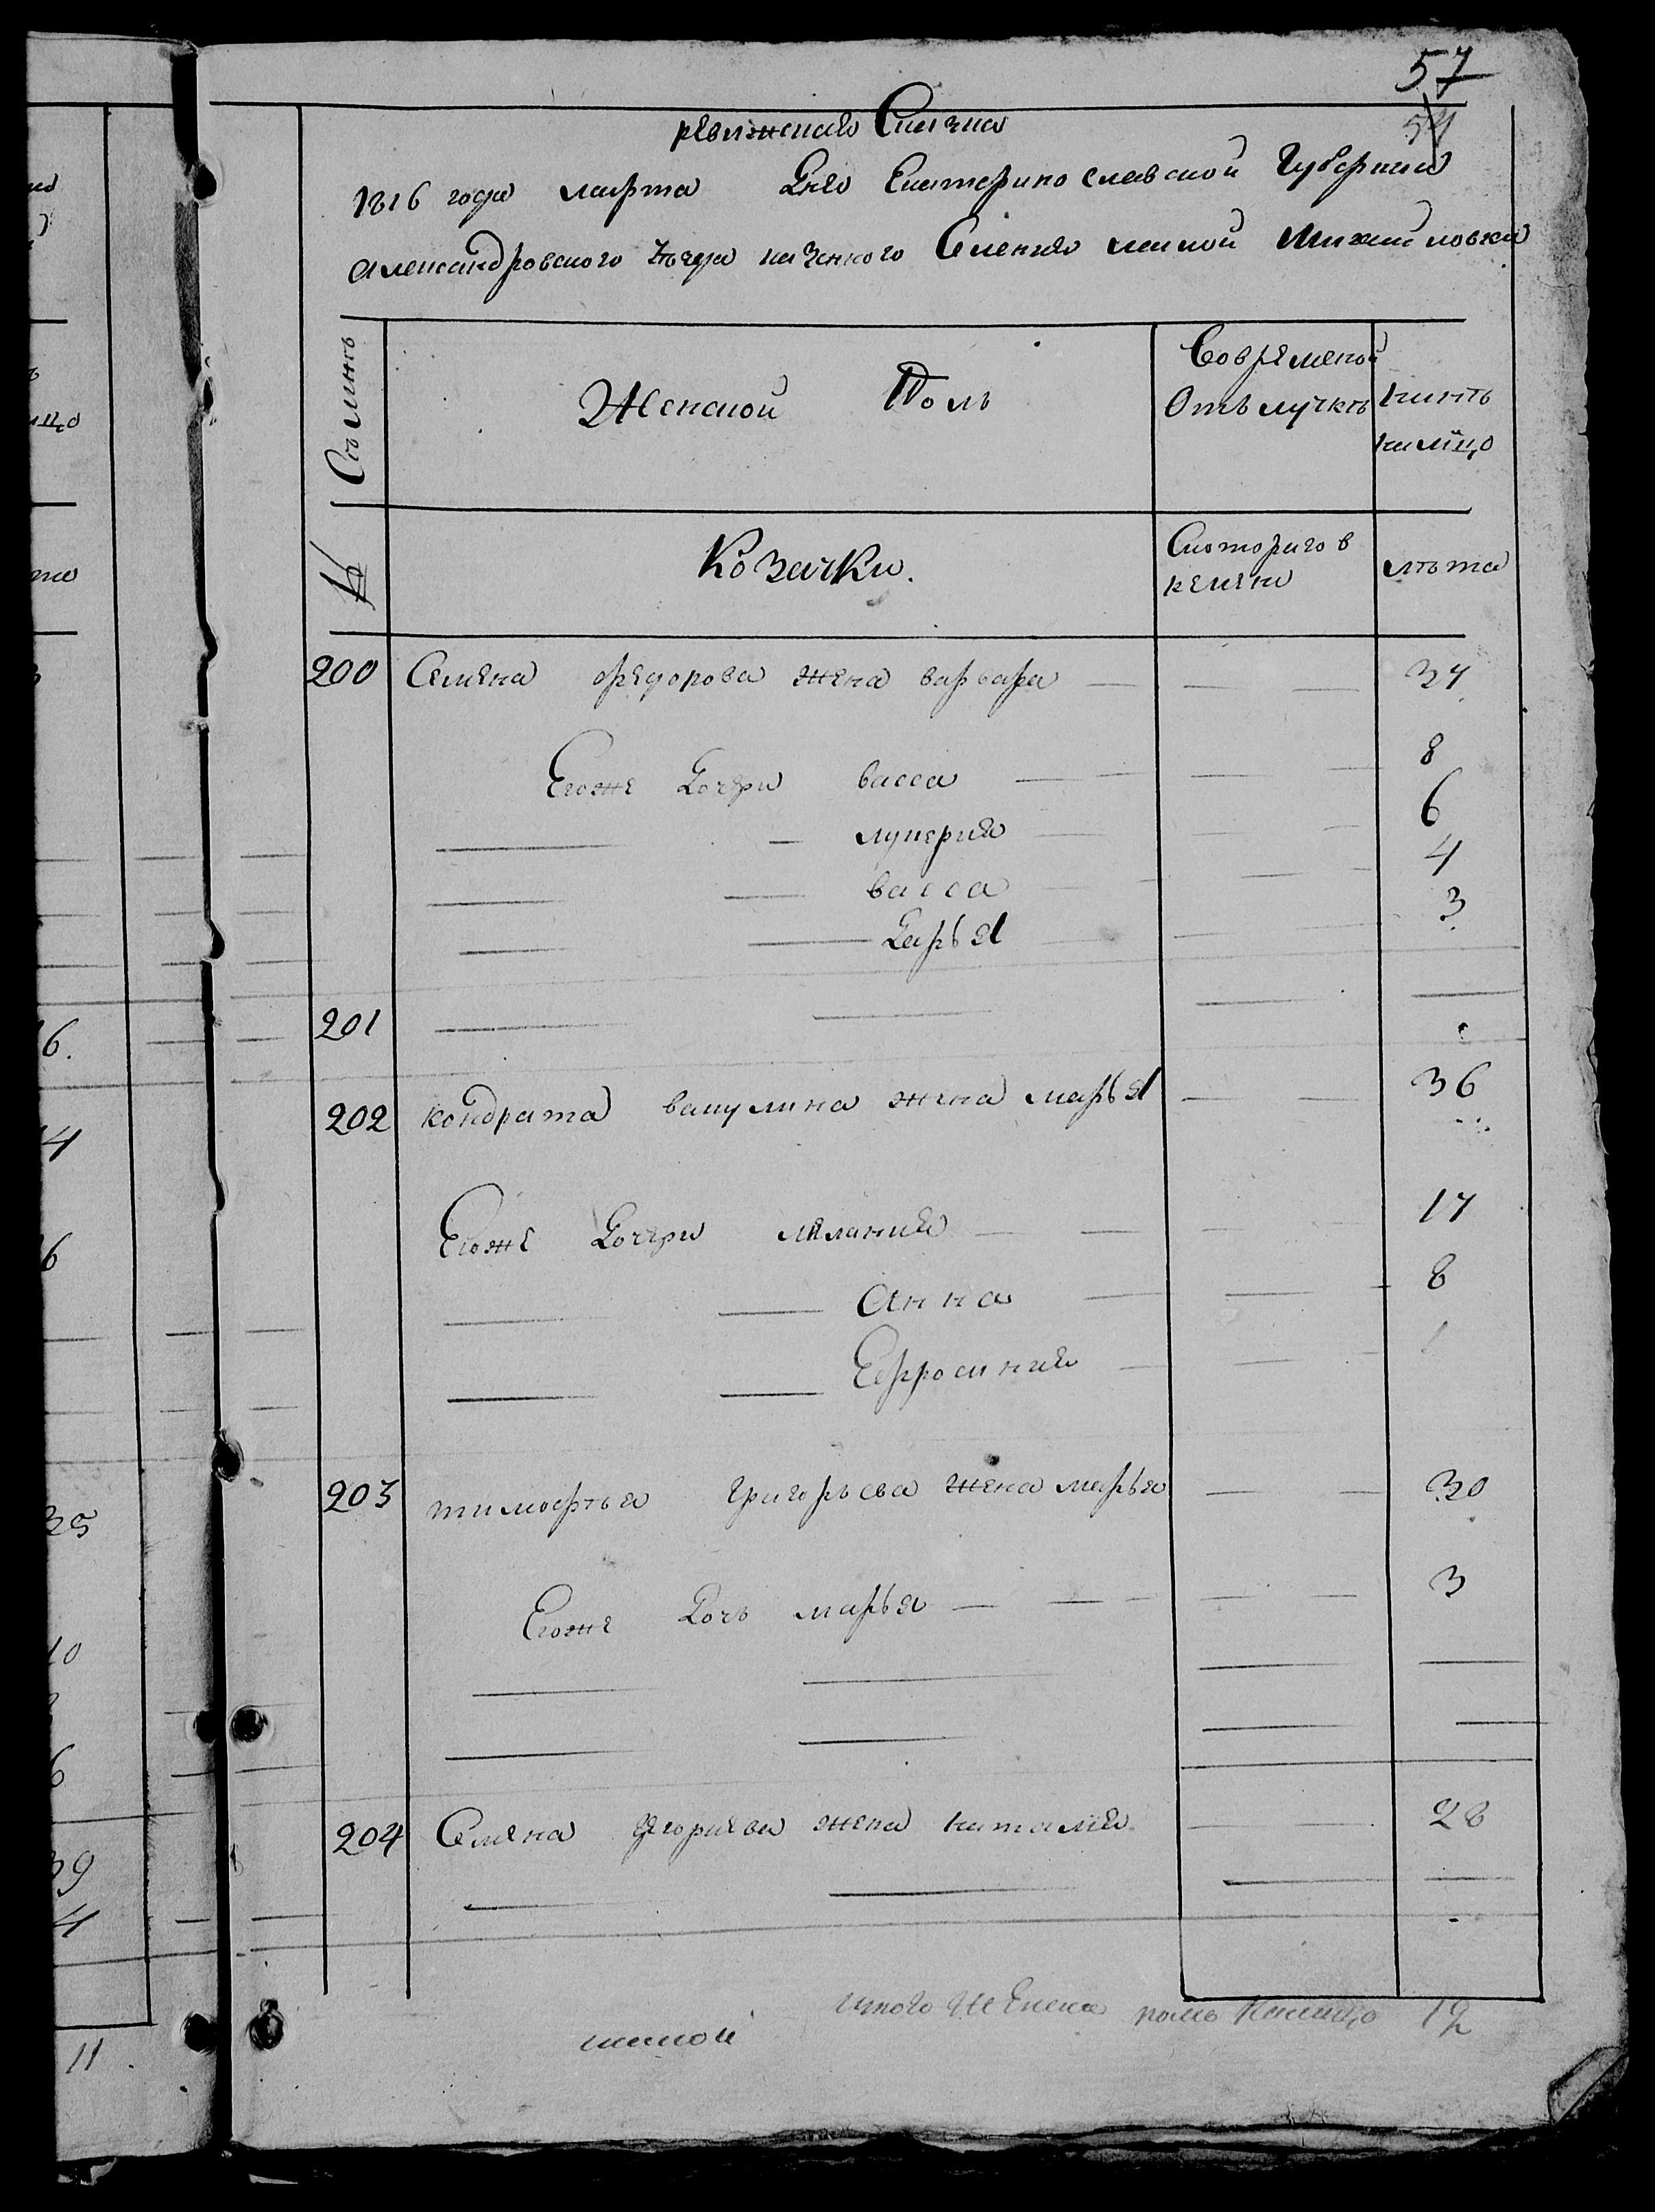 57
54
ревизская Сказка
1816 года марта Дня Екатеринославской Губернии
Александровского уезда казенного Селения малой Михайловки
Семьи
Женской Поль
Современой
Отълучкъ
ныне
налицо
№
Козачки.
Скоторого в
ремени
лѣта
200 Семена федорова жена варвара 34
Егоже Дочери васса 8
лукерия 6
васса 4
Дарья 3
201
202 кондрата вакулина жена марья 36
Егоже Дочери мелания 17
Анна 8
Ефросиния 1
203 тимофѣя григорьева жена марья 30
Егоже Дочь марья 3
204 Семена жена наталия 28
итого женска полъ налицо 12
малой
6.
4
6
35
10
6
39
4
11